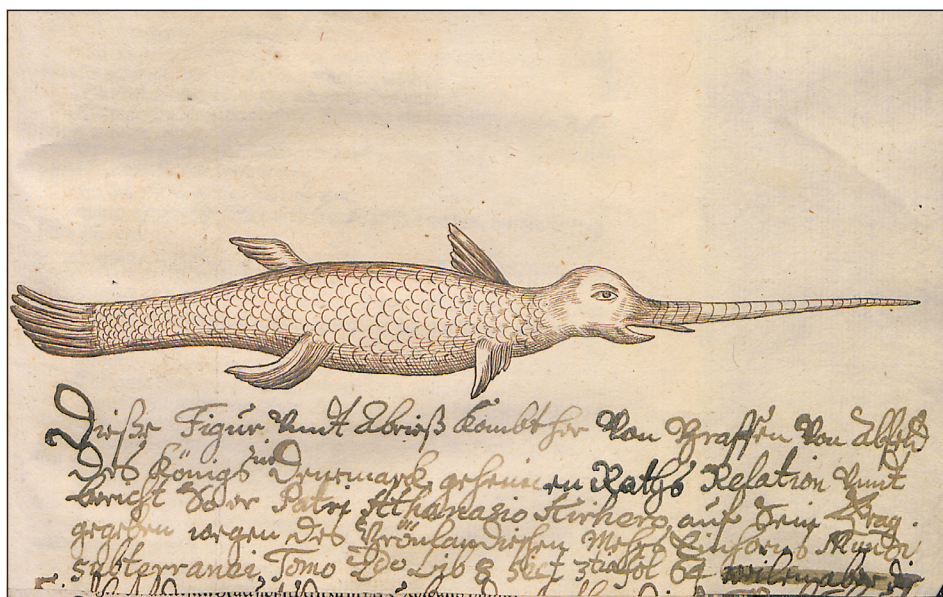 Diesße Figur Vnndt Abrieß Kombt her Von Graffen Von Alfeld
des Königs in Denemarck geheimen Raths Relation Vnndt
bericht So er Patri Athanasio Kirhero auf Sein Frag
gegeben wegen des Grönlandischen Mehr Einhorns Mundi
subterranei Tomo 2do Lib 8 Sect 3tia fol 64